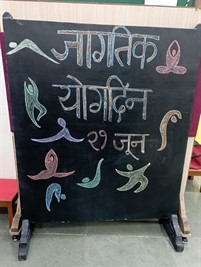 जागतिक
योगदिन
२१ जून